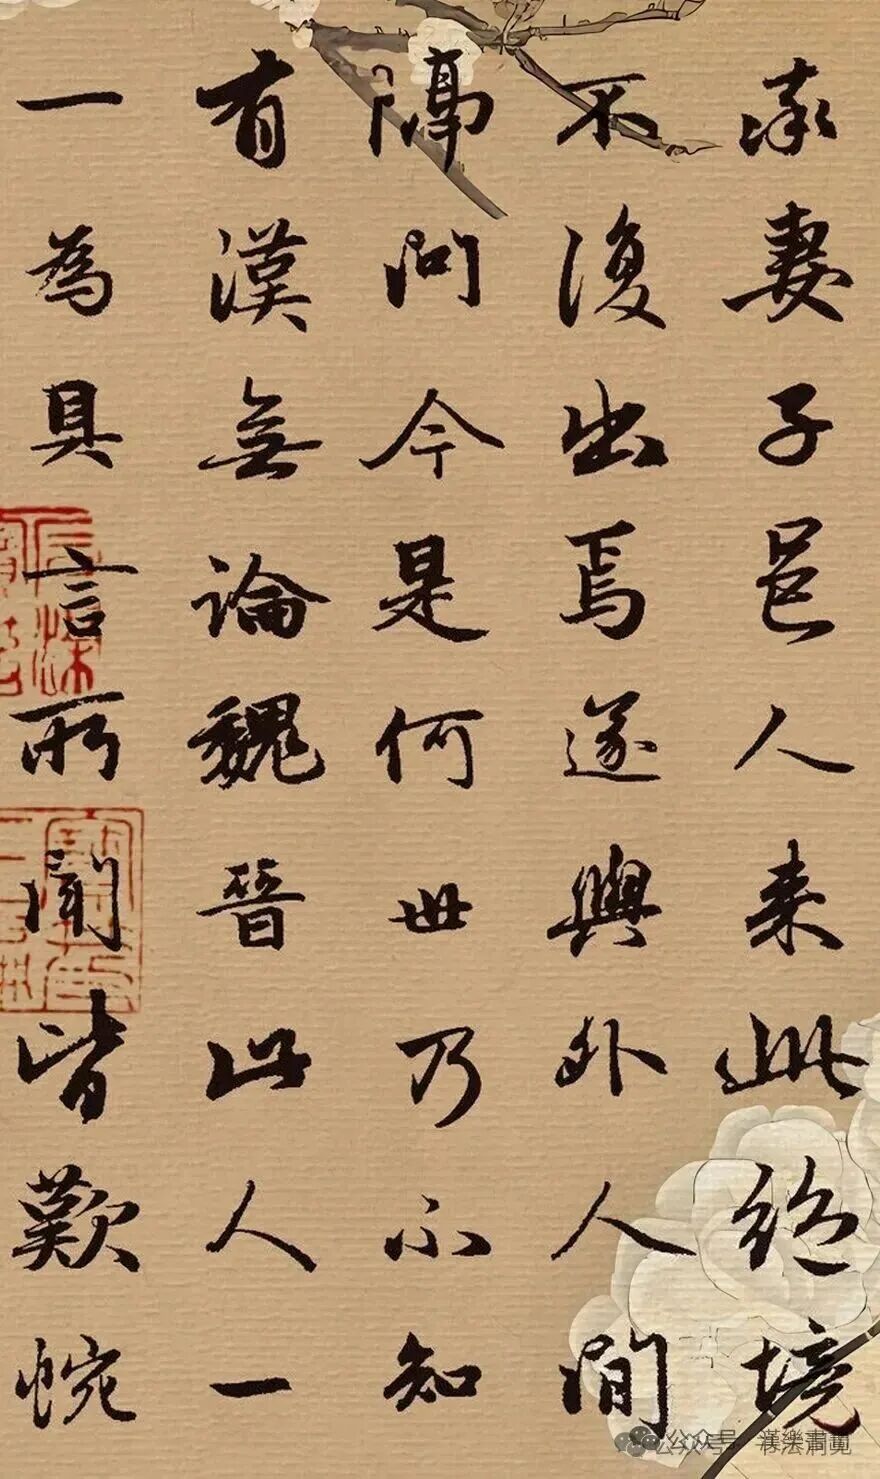 率妻子邑人来此絶境
不復出焉遂與外人間
隔問今是何世乃不知
有漢無論魏晉此人一
一為具言所聞皆歎惋
公众号